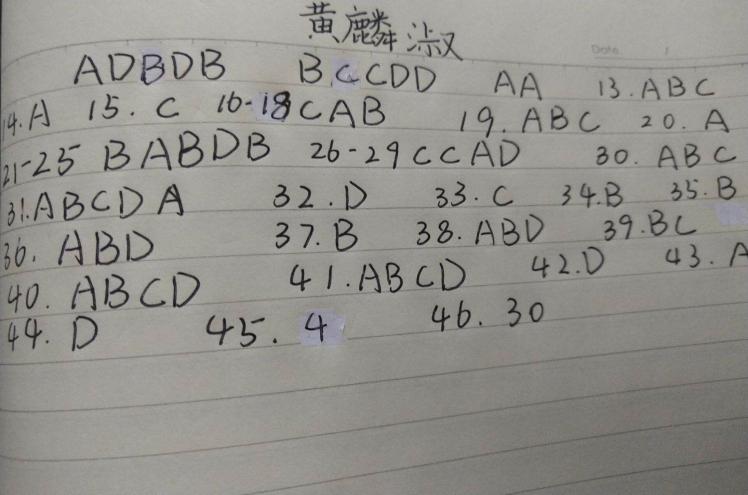 黄麟淑
Date
ADBDB BCCDD AA 13.ABC
14.A 15.C 16-18CAB 19.ABC 20.A
21-25 BABDB 26-29CCAD 30.ABC
31.ABCDA 32.D 33.C 34.B 35.B
36.ABD 37.B 38.ABD 39.BC
40.ABCD 41.ABCD 42.D 43.A
44.D 45.4 46.30